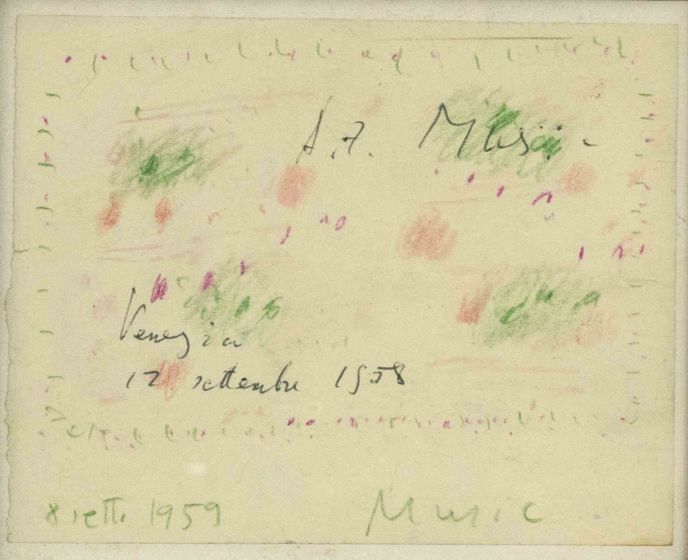 A.Z. Music
Venezia
12 settembre 1958
8 sett. 1959 Music